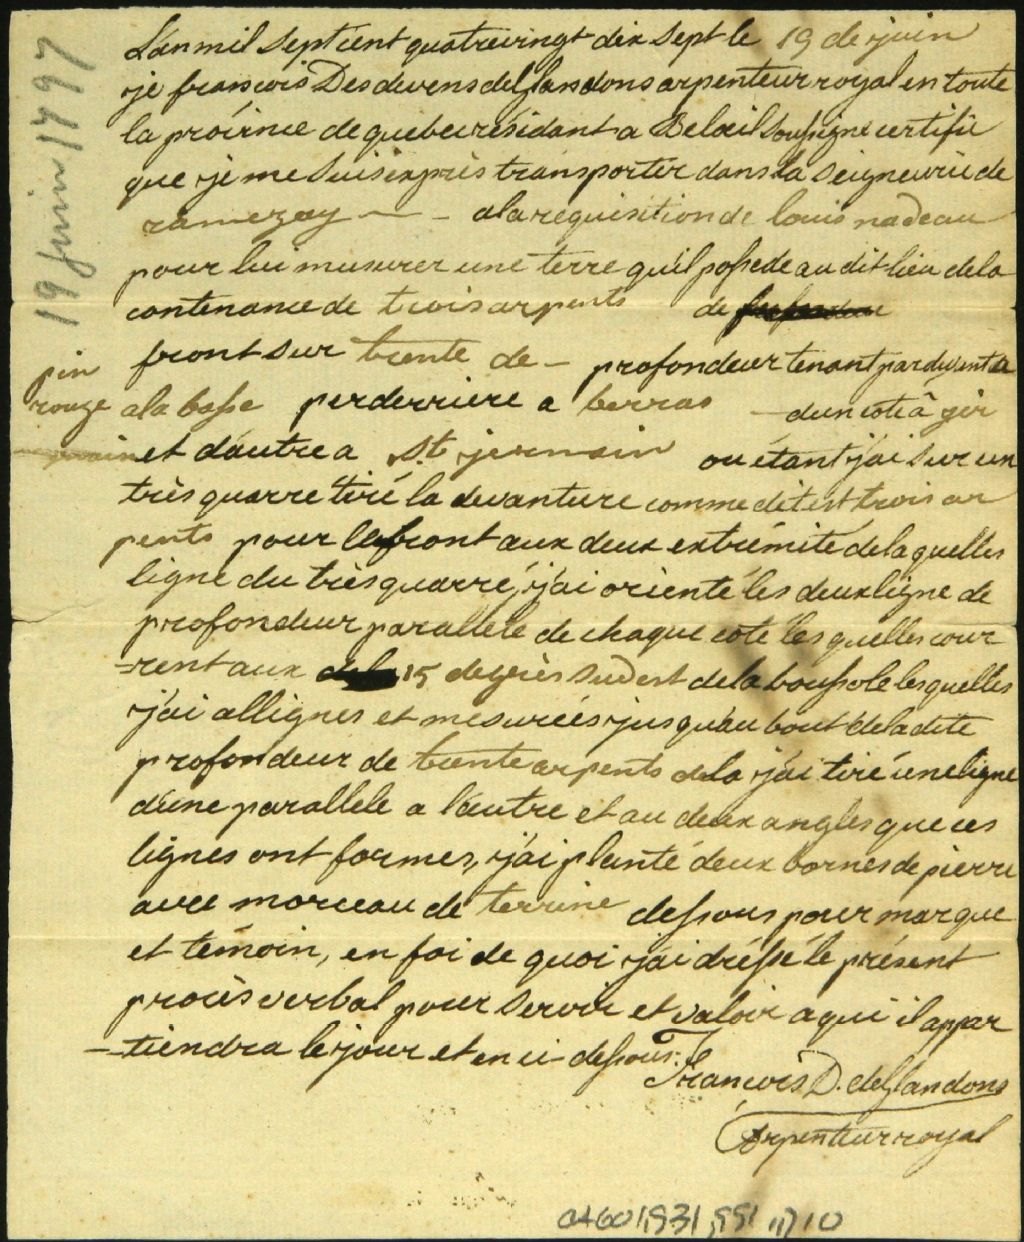 19 Juin 1797
L'an mil sept cent quatrevingt dix sept le 19 de juin
je francois Desdevens de glandons arpenteur royal en toute
la proèrince de quebec résidant a Belœil soussigné certifie
que je me suis exprès transporter dans la seigneurie de
ramezay - a la requisition de louis nadeau
pour lui musurer une terre qu'il possede au dit lieu de la
contenance de trois arpents de
front sur trente de - profondeur tenant par devant a
pin
rouge a la basse perderriere a berras - dun coté à
et d'autre a St. jermain ou étant j'ai sur un
très quarré tiré la devanture comme dit est trois ar
pents pour le front aux deux extrémité delaquelles
ligne du très quarré, j'ai orienté les deux ligne de
profondeur parallele de chaque coté lesquelles cour
-rent aux 15 degrés sud est de la boussole lesquelles
j'ai allignes et mesurées jusqu'au bout de la dite
profondeur de trente arpents de la j'ai tiré une ligne
d'une parallele a l'autre et au deux angles que ces
lignes ont formes, j'ai planté deux bornes de pierre
avec morceau de terrine dessous pour marque
et témoin, en foi de quoi j'ai dréssé le présent
procès verbal pour servir et valoir a qui il appar
-tiendra le jour et en ci-dessous.
Francois D. de glandons
Arpenteur royal